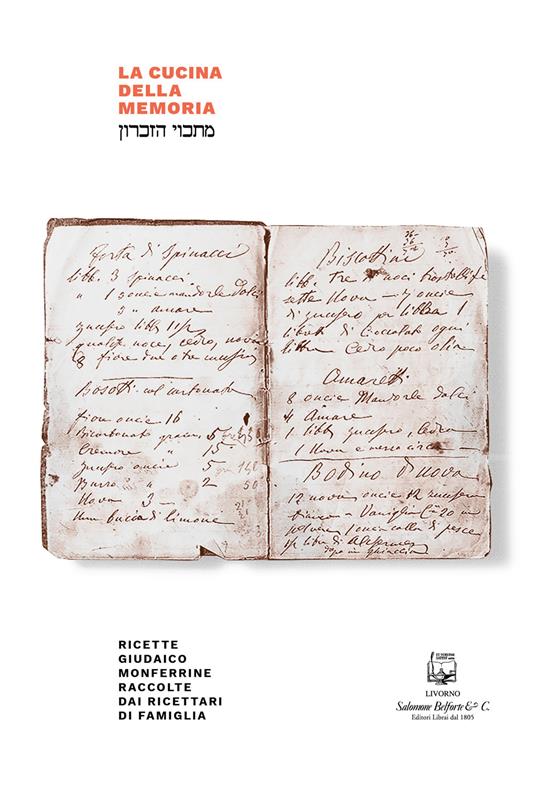 LA CUCINA
DELLA
MEMORIA
מתכוי הזכרון
Torta di Spinacci
libb. 3 spinacci
" 1 oncie mandorle dolci
3 " amare
zucchero libb 1 1/2
qualche noce, cedro, nova
8 fiore
Bosotti col
fior oncie 16
Bicarbonato grammi 5
Cremore " 15
zucchero oncie 5
Burro " 2 50
Nova 3
Una buccia di limone
Biscottini
libb. tre noci
sette Nova — 7 oncie
di zucchero per libbra 1
libbra di Cioccolate ogni
libbra Cedro poco
Amaretti
8 oncie Mandorle dolci
4 Amare
1 libb zucchero, Cedro
1 Nova e mezzo circa
Bodino d'nova
12 nova oncie 12 zucchero
Vaniglia 20 in
polvere 1 oncia colla di pesce
1/2 libra di Alkermes
dopo in ghiaccio
RICETTE
GIUDAICO
MONFERRINE
RACCOLTE
DAI RICETTARI
DI FAMIGLIA
LIVORNO
Salomone Belforte & C.
Editori Librai dal 1805